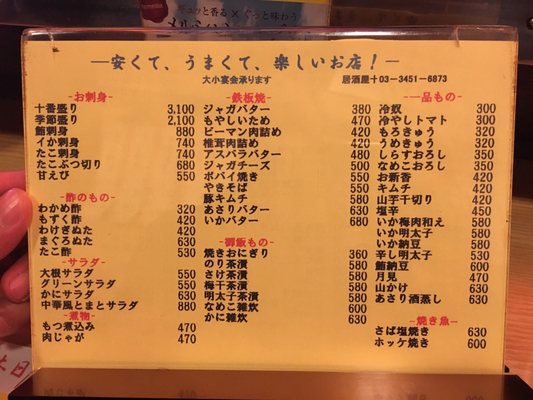 ギュッと香る×ぐっと味わう
―安くて、うまくて、楽しいお店！―
大小宴会承ります
居酒屋十03-3451-6873
-お刺身-
十番盛り 3,100
季節盛り 2,100
鮪刺身 880
イか刺身 740
たこ刺身 740
たこぶつ切り 680
甘えび 550
-酢のもの-
わかめ酢 320
もずく酢 420
わけぎぬた 420
まぐろぬた 630
たこ酢 530
-サラダ-
大根サラダ 550
グリーンサラダ 550
かにサラダ 630
中華風とまとサラダ 880
-煮物-
もつ煮込み 470
肉じゃが 470
-鉄板焼-
ジャガバター 380
もやしいため 470
ピーマン肉詰め 420
椎茸肉詰め 420
アスパラバター 480
ジャガチーズ 500
ポパイ焼き 550
やきそば 550
豚キムチ 580
あさりバター
いかバター 680
-御飯もの-
焼きおにぎり 360
のり茶漬 580
さけ茶漬 580
梅干茶漬 580
明太子茶漬 580
なめこ雑炊 600
かに雑炊
-一品もの-
冷奴 300
冷やしトマト 300
もろきゅう 320
うめきゅう 320
しらすおろし 350
なめこおろし 350
お新香 420
キムチ 420
山芋千切り 420
塩辛 450
いか梅肉和え 580
いか明太子 580
いか納豆 580
辛し明太子 530
鮪納豆 630
月見 470
山かけ 630
あさり酒蒸し 630
-焼き魚-
さば塩焼き 630
ホッケ焼き 600